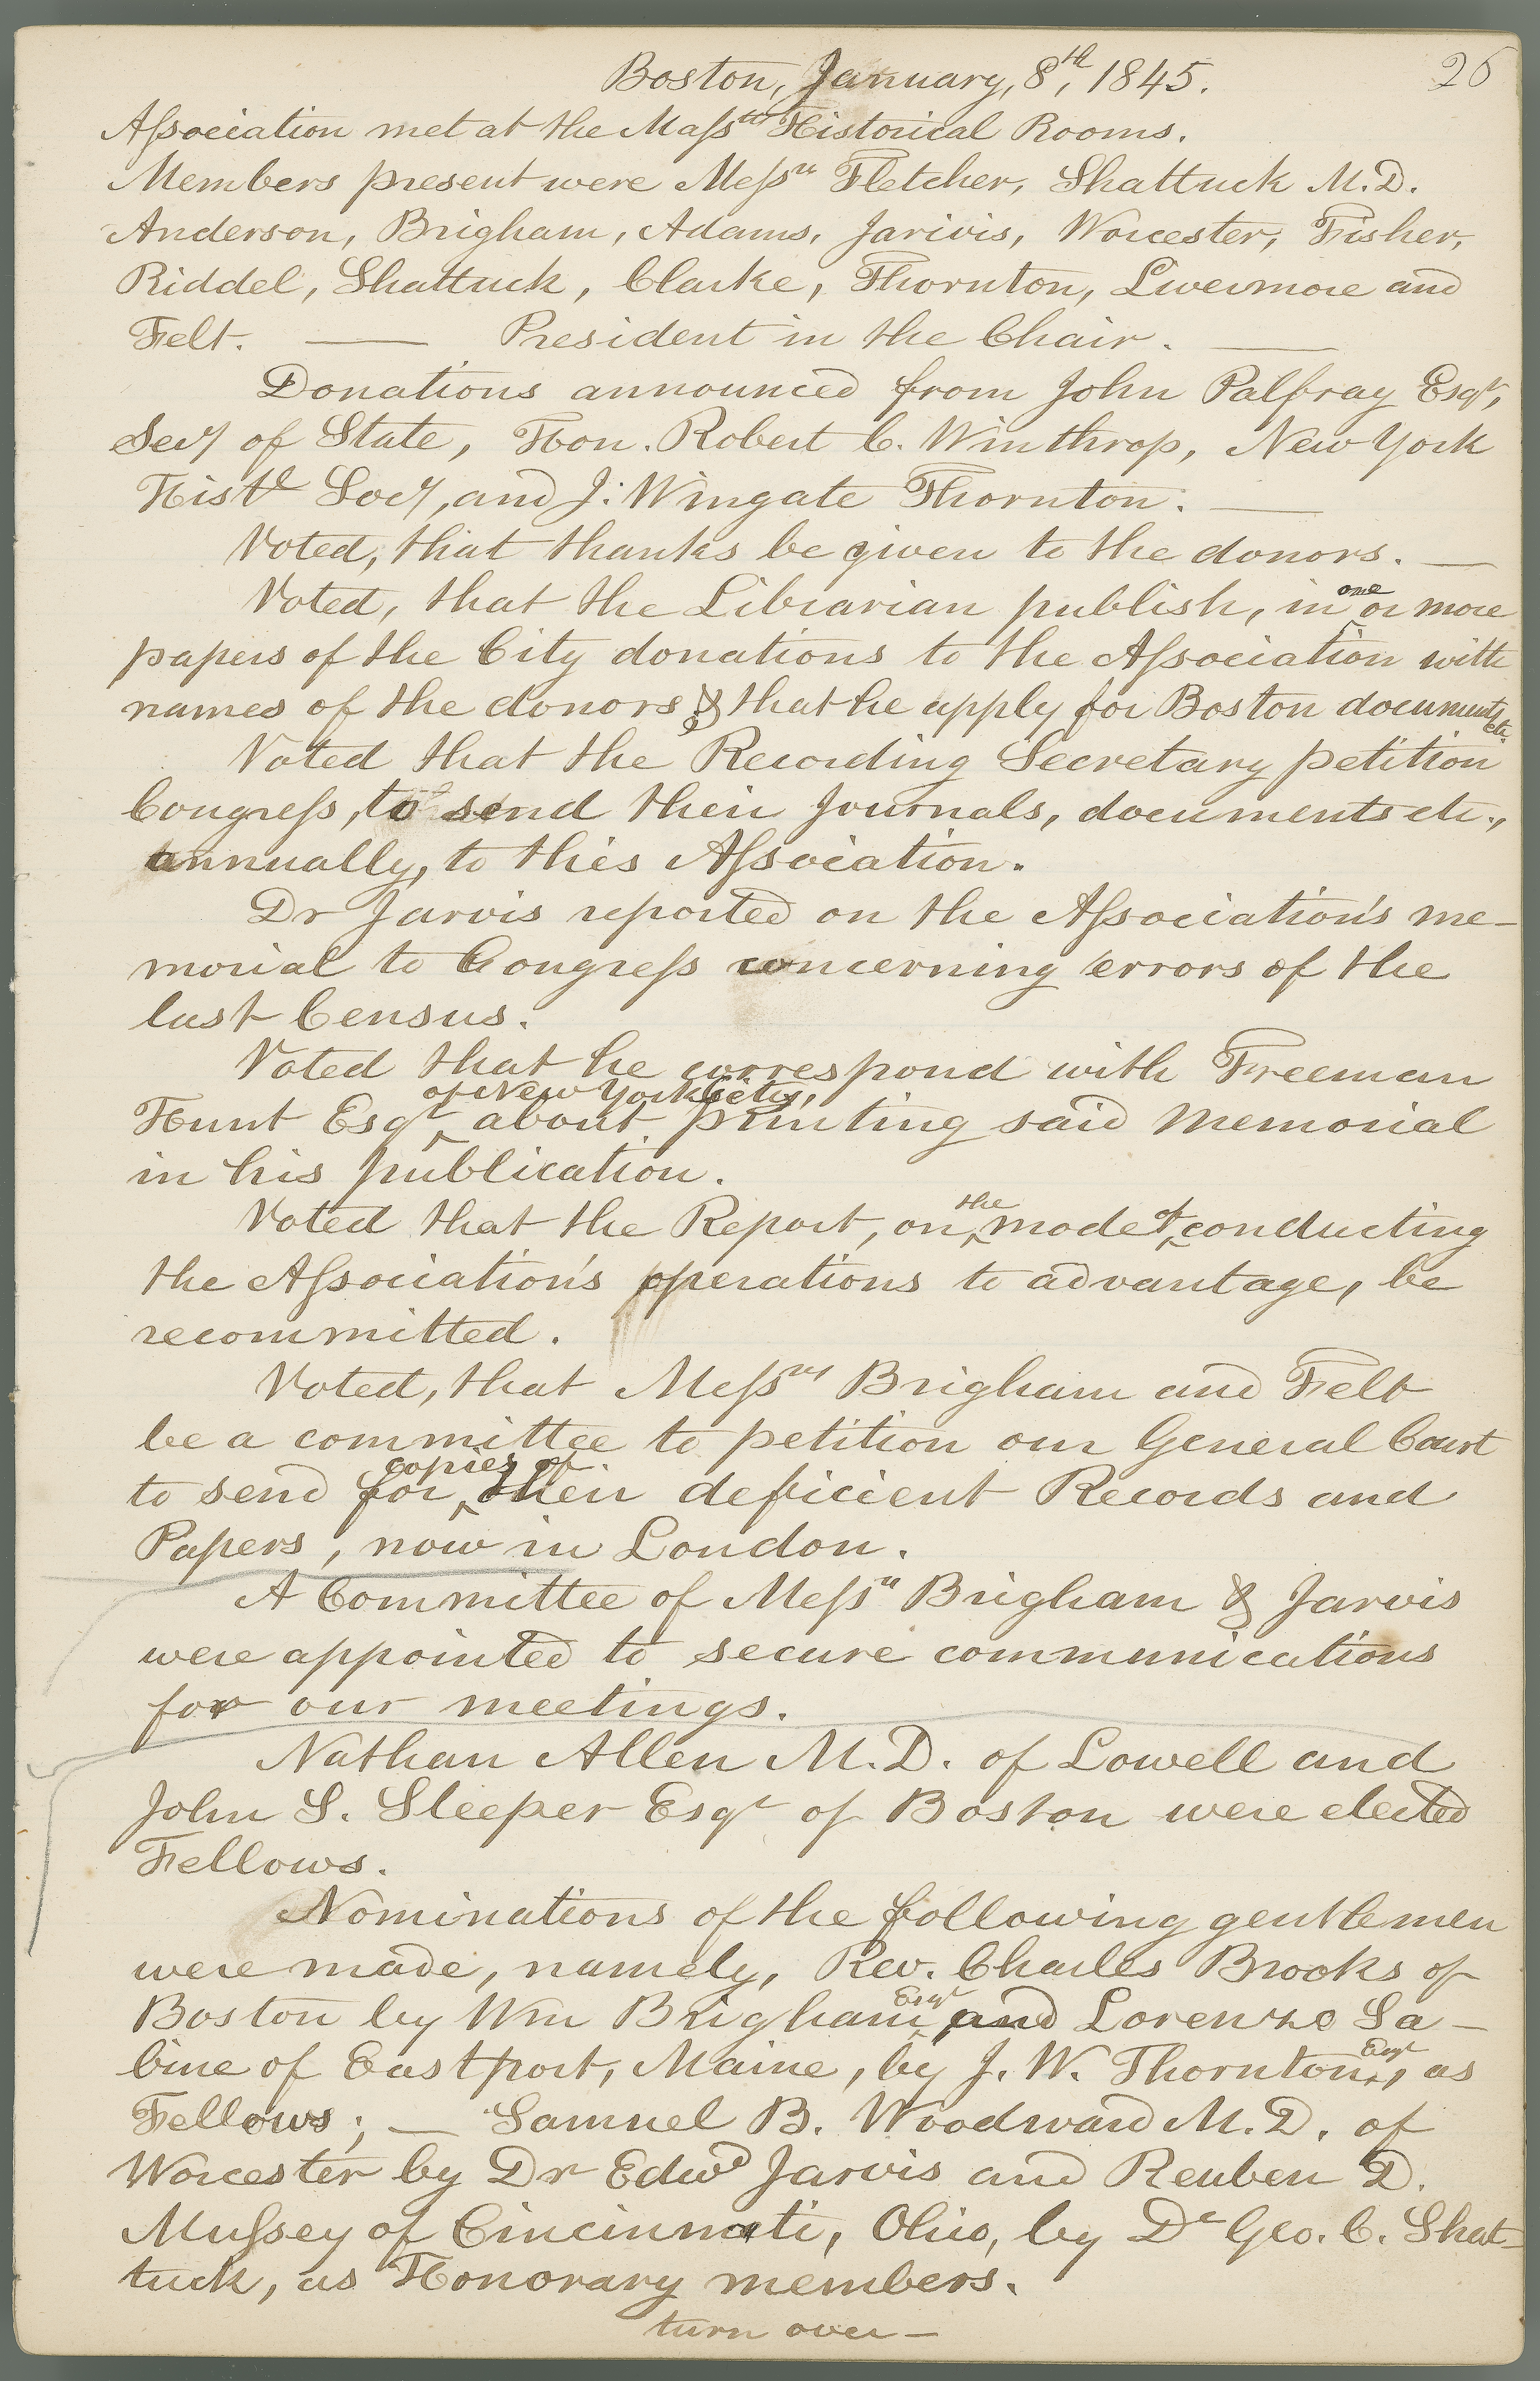 26
Boston, January, 8th, 1845.
Association met at the Massts Historical Rooms.
Members present were Messrs Fletcher, Shattuck M.D.
Anderson, Brigham, Adams, Jarivis, Worcester, Fisher,
Riddel, Shattuck, Clarke, Thornton, Livermore and
Felt. — President in the Chair. —
Donations announced from John Palfray Esqr,
Secy of State, Hon. Robert C. Winthrop, New York
Histl Socy, and J: Wingate Thornton. —
Voted, that thanks be given to the donors. —
Voted, that the Librarian publish, in one or more
papers of the City donations to the Association with
names of the donors & that he apply for Boston documents etc.
Voted that the Recording Secretary petition
Congress, to send their Journals, documents etc.,
annually, to this Association.
Dr Jarvis reported on the Association's me-
morial to Congress concerning errors of the
last Census.
Voted that he correspond with Freeman
Hunt Esqr of New York City, about printing said Memorial
in his publication.
Voted that the Report, on the mode of conducting
the Association's operations to advantage, be
recommitted.
Voted, that Messrs Brigham and Felt
be a committee to petition our General Court
to send for copies of their deficient Records and
Papers, now in London.
A Committee of Messrs Brigham & Jarvis
were appointed to secure communications
for our meetings.
Nathan Allen M.D. of Lowell and
John S. Sleeper Esqr of Boston were elected
Fellows.
Nominations of the following gentlemen
were made, namely, Rev. Charles Brooks of
Boston by Wm Brigham Esqr, and Lorenzo Sa-
bine of Eastport, Maine, by J. W. Thornton Esqr, as
Fellows; — Samuel B. Woodward M.D. of
Worcester by Dr Edwd Jarvis and Reuben D.
Mussey of Cincinnati, Ohio, by Dr Geo. C. Shat-
tuck, as Honorary members.
turn over —